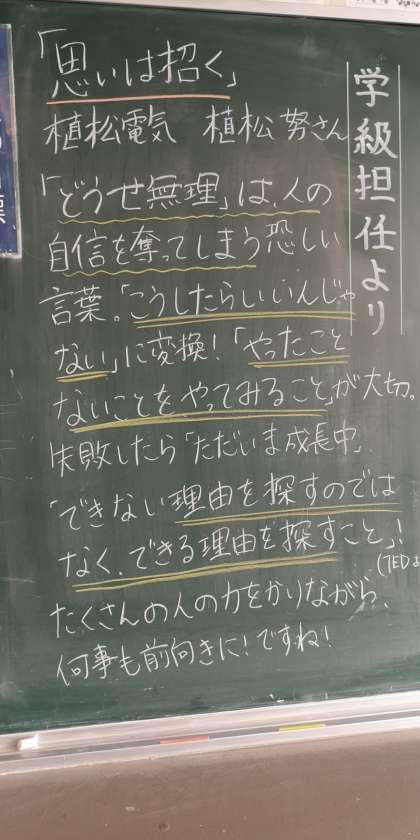 学級担任より
「思いは招く」
植松電気 植松 努さん
「どうせ無理」は、人の
自信を奪ってしまう恐しい
言葉。「こうしたらいいんじゃ
ない」に変換!「やったこと
ないことをやってみること」が大切。
失敗したら「ただいま成長中」
「できない理由を探すのでは
なく、できる理由を探すこと」!
(TEDよ
たくさんの人の力をかりながら、
何事も前向きに!ですね!